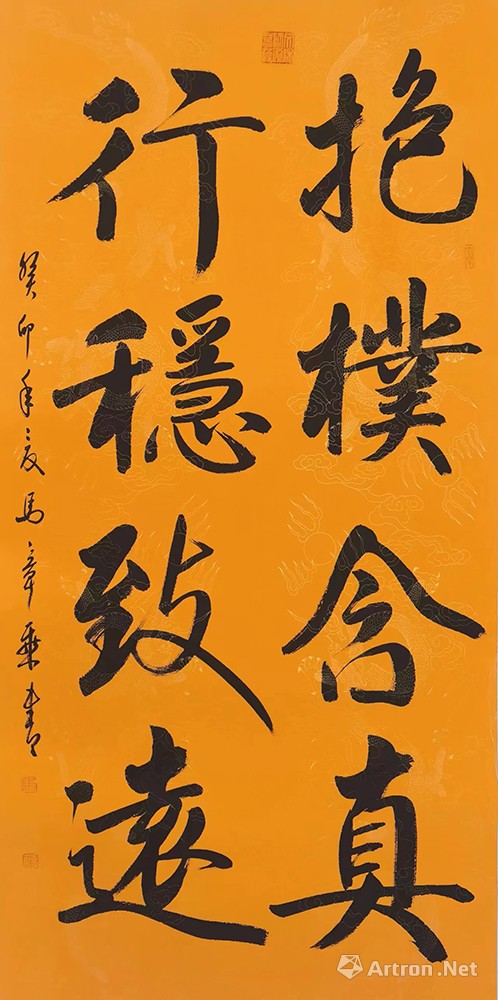 抱樸含真
行穩致遠
癸卯年夏馬章乘書
Artron.Net